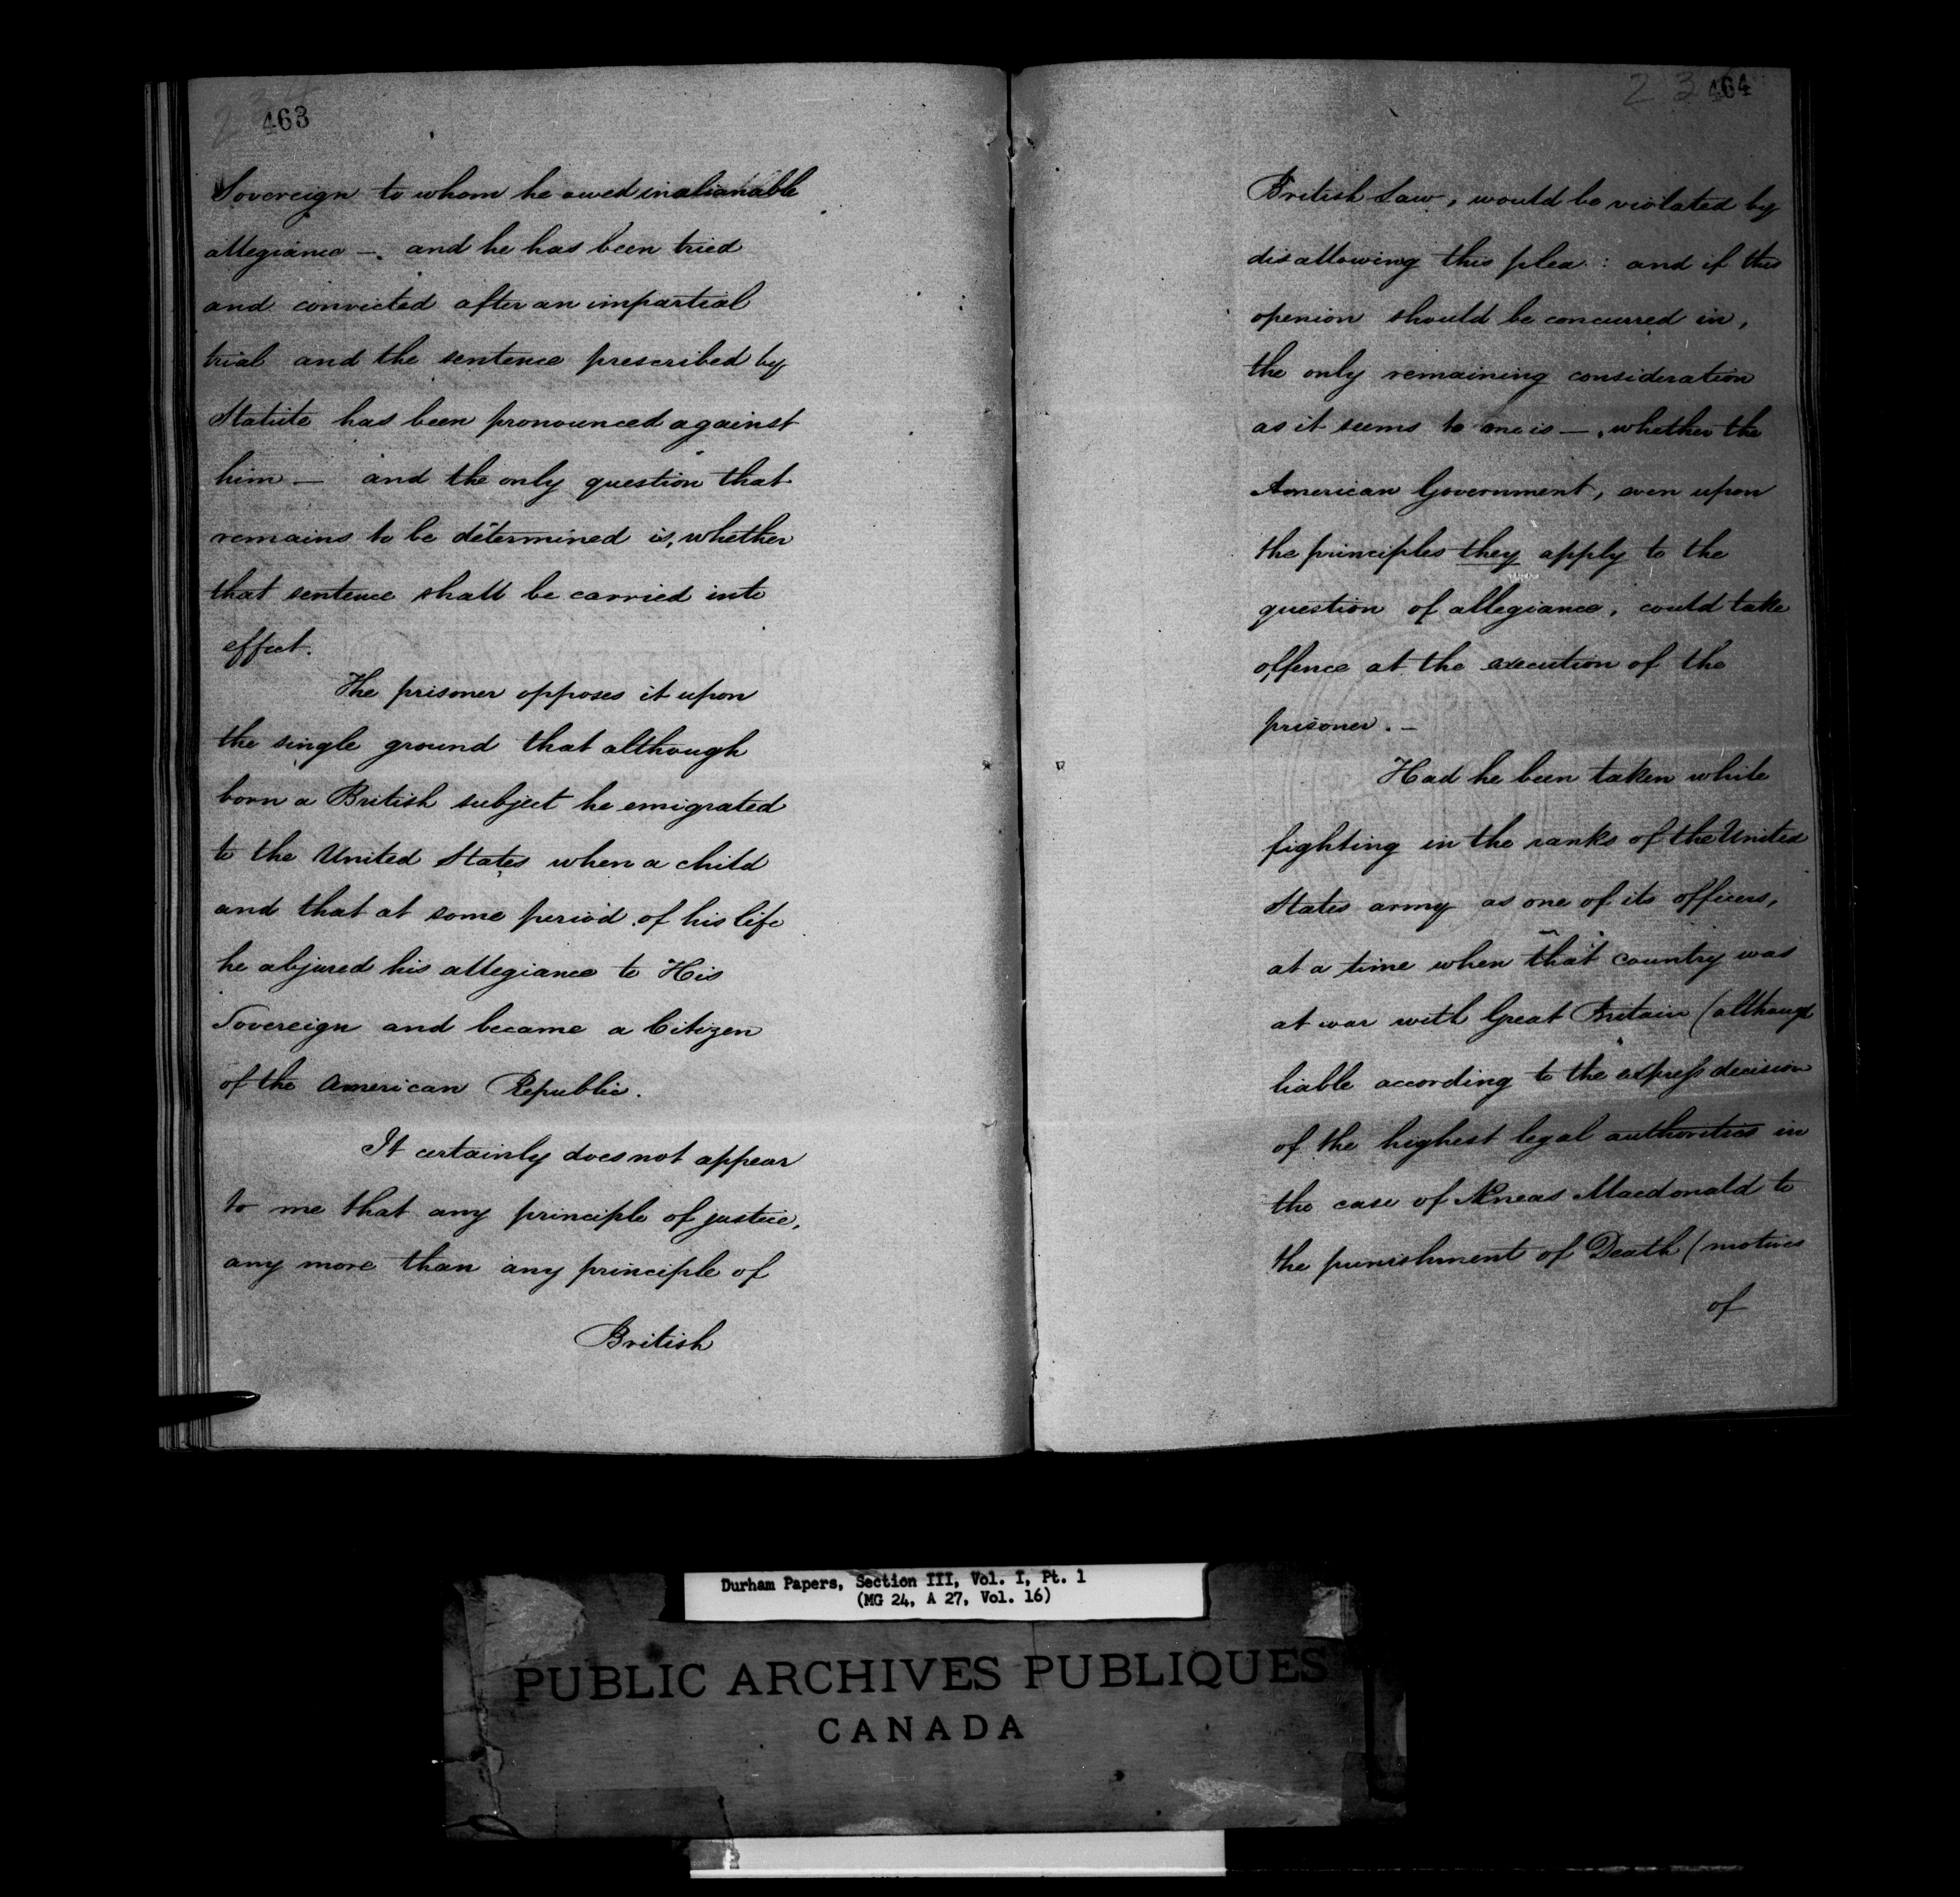 463
Sovereign to whom he owed inalianable
allegiance —. and he has been tried
and convicted after an impartial
trial and the sentence prescribed by
Statute has been pronounced against
him — and the only question that
remains to be determined is, whether
that sentence shall be carried into
effect.
The prisoner opposes it upon
the single ground that although
born a British subject he emigrated
to the United States when a child
and that at some period of his life
he abjured his allegiance to His
Sovereign and became a Citizen
of the American Republic.
It certainly does not appear
to me that any principle of justice,
any more than any principle of
British
464
British Law, would be violated by
disallowing this plea: and if this
openion should be concurred in,
the only remaining consideration
as it seems to me is —, whether the
American Government, even upon
the principles they apply to the
question of allegiance, could take
offence at the execution of the
prisoner. —
Had he been taken while
fighting in the ranks of the United
States army as one of its officers,
at a time when that country was
at war with Great Britain (although
liable according to the express decision
of the highest legal authorities in
the case of Æneas Macdonald to
the punishment of Death (motives
of
Durham Papers, Section III, Vol. I, Pt. 1
(MG 24, A 27, Vol. 16)
PUBLIC ARCHIVES PUBLIQUES
CANADA